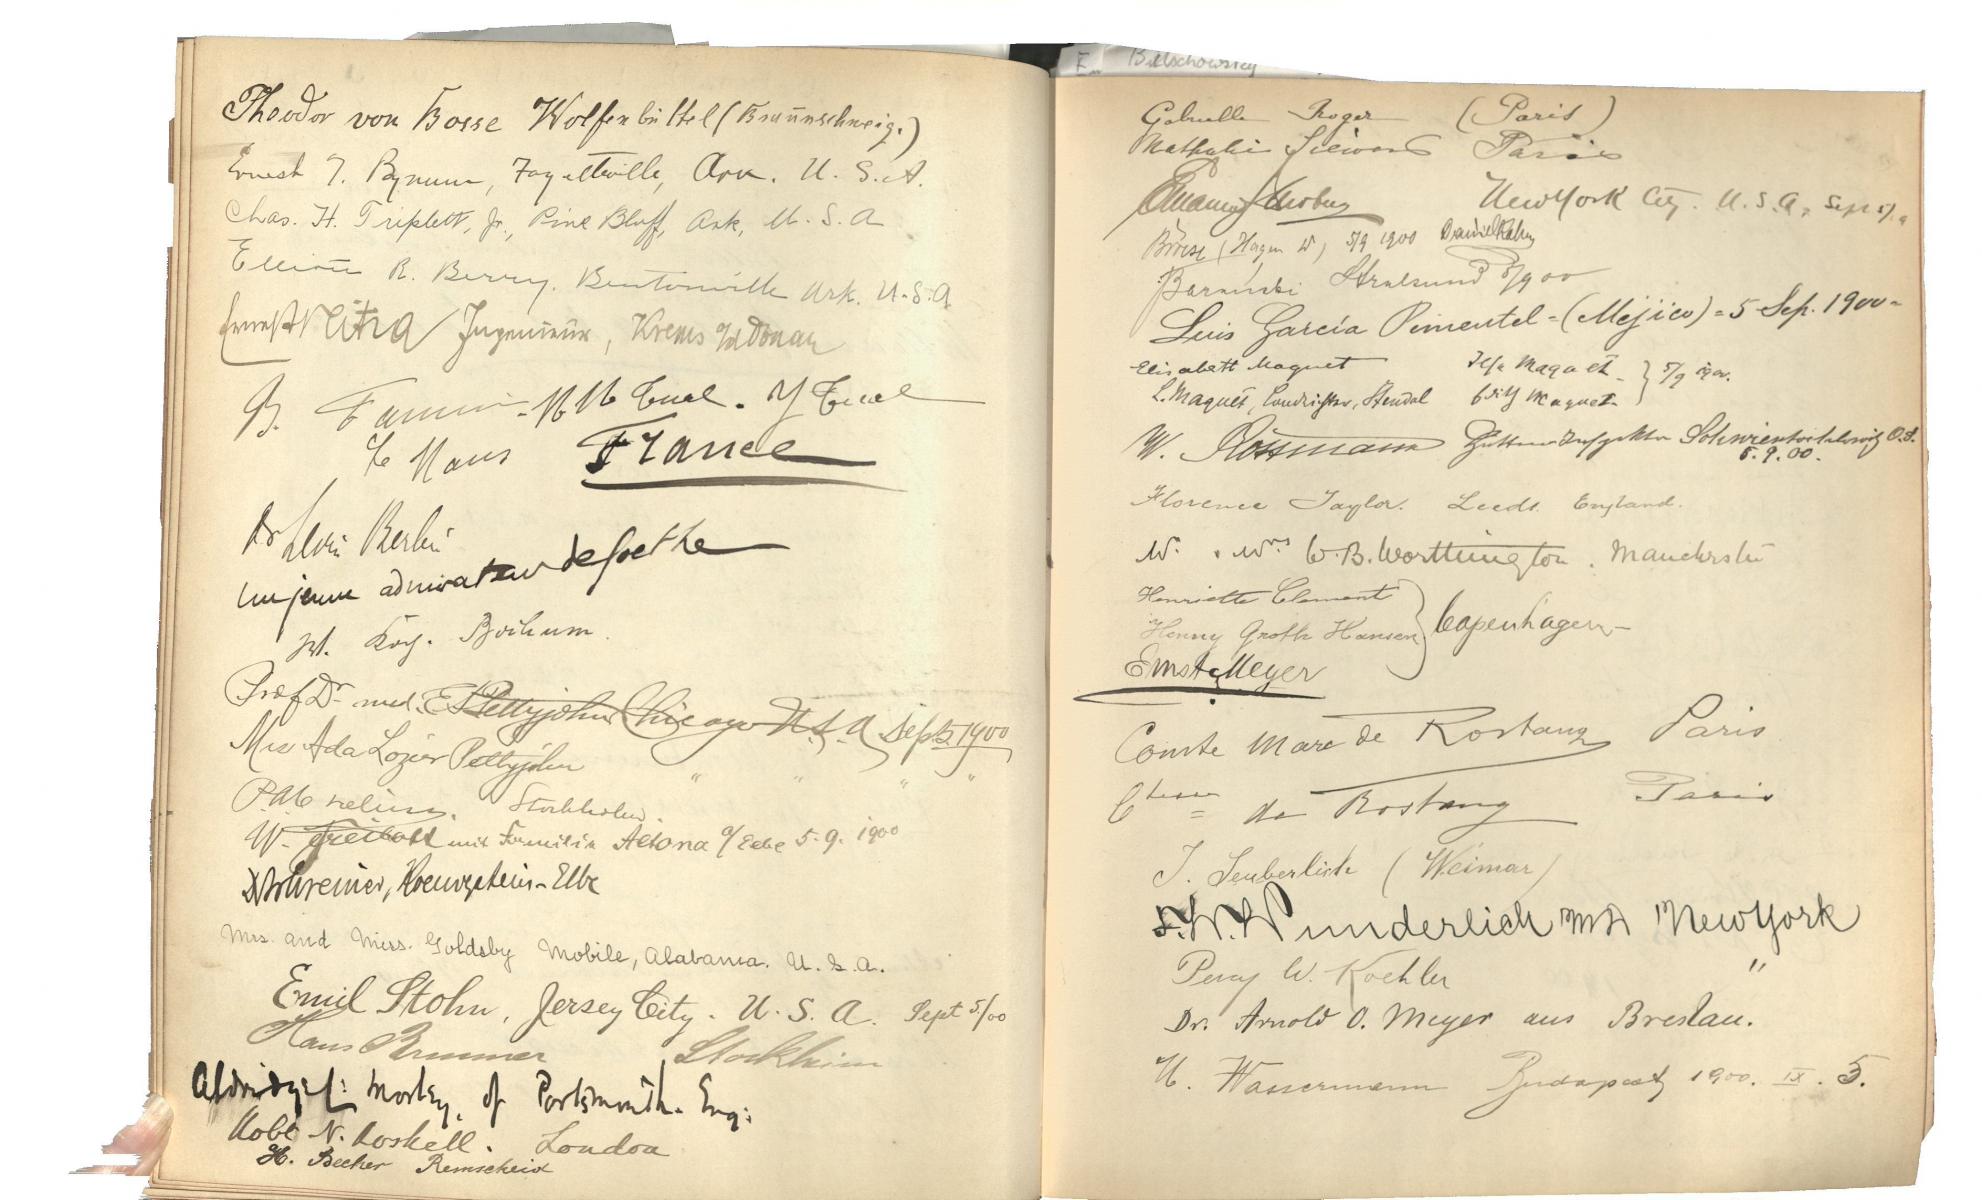 Bielschowsky
Theodor von Bosse Wolfenbüttel (Braunschweig.)
Ernest T. Bynum, Fayetteville, Ark. U. S. A.
Chas. H. Triplett, Jr., Pine Bluff, Ark, U. S. A
R. Berry, Bentonville Ark. U. S. A
Ernest Ingenieur, Krems a/d Donau
B.
Le Mans France
Dr Levi Berlin
un jeune admirateur de Goethe
Bochum.
Prof Dr med. E Pettyjohn Chicago U.S.A Sept 5 1900
Mrs Ada Lozier Pettyjohn " " " "
Stockholm.
W. mit Familie Altona a/Elbe 5.9. 1900
Mrs. and Miss. Goldsby Mobile, Alabama. U. S. A.
Emil Stohn, Jersey City. U. S. A. Sept 5/00
Hans Brunner Stockheim
Morley, of Portsmouth. Eng:
Robt N. Roskell. London
H. Becker Remscheid
Gabrielle Roger (Paris)
Nathalie Paris
New York City. U. S. A, Sept 5/
(Hagen W) 5/9 1900 Daniel Kahn
Stralsund 5/9 00
Luis García Pimentel = (Méjico) = 5 Sep. 1900 =
Elisabeth Maquet Ilse Maquet
L. Maquet, Landrichter, Stendal Fritz Maquet } 5/9 1900.
W. Rossmann Hütteninspektor Schwientochlowitz O.S.
5. 9. 00.
Florence Taylor. Leeds. England.
Mr. & Mrs W. B. Worthington. Manchester
Henriette Clement
Henny Groth Hansen } Copenhagen
Ernst Meyer
Comte Marc de Rostang Paris
Ctesse de Rostang Paris
J. Seuberlich (Weimar)
Wunderlich MD New York
Percy W. Koehler "
Dr. Arnold O. Meyer aus Breslau.
Wassermann Budapest 1900. IX. 5.